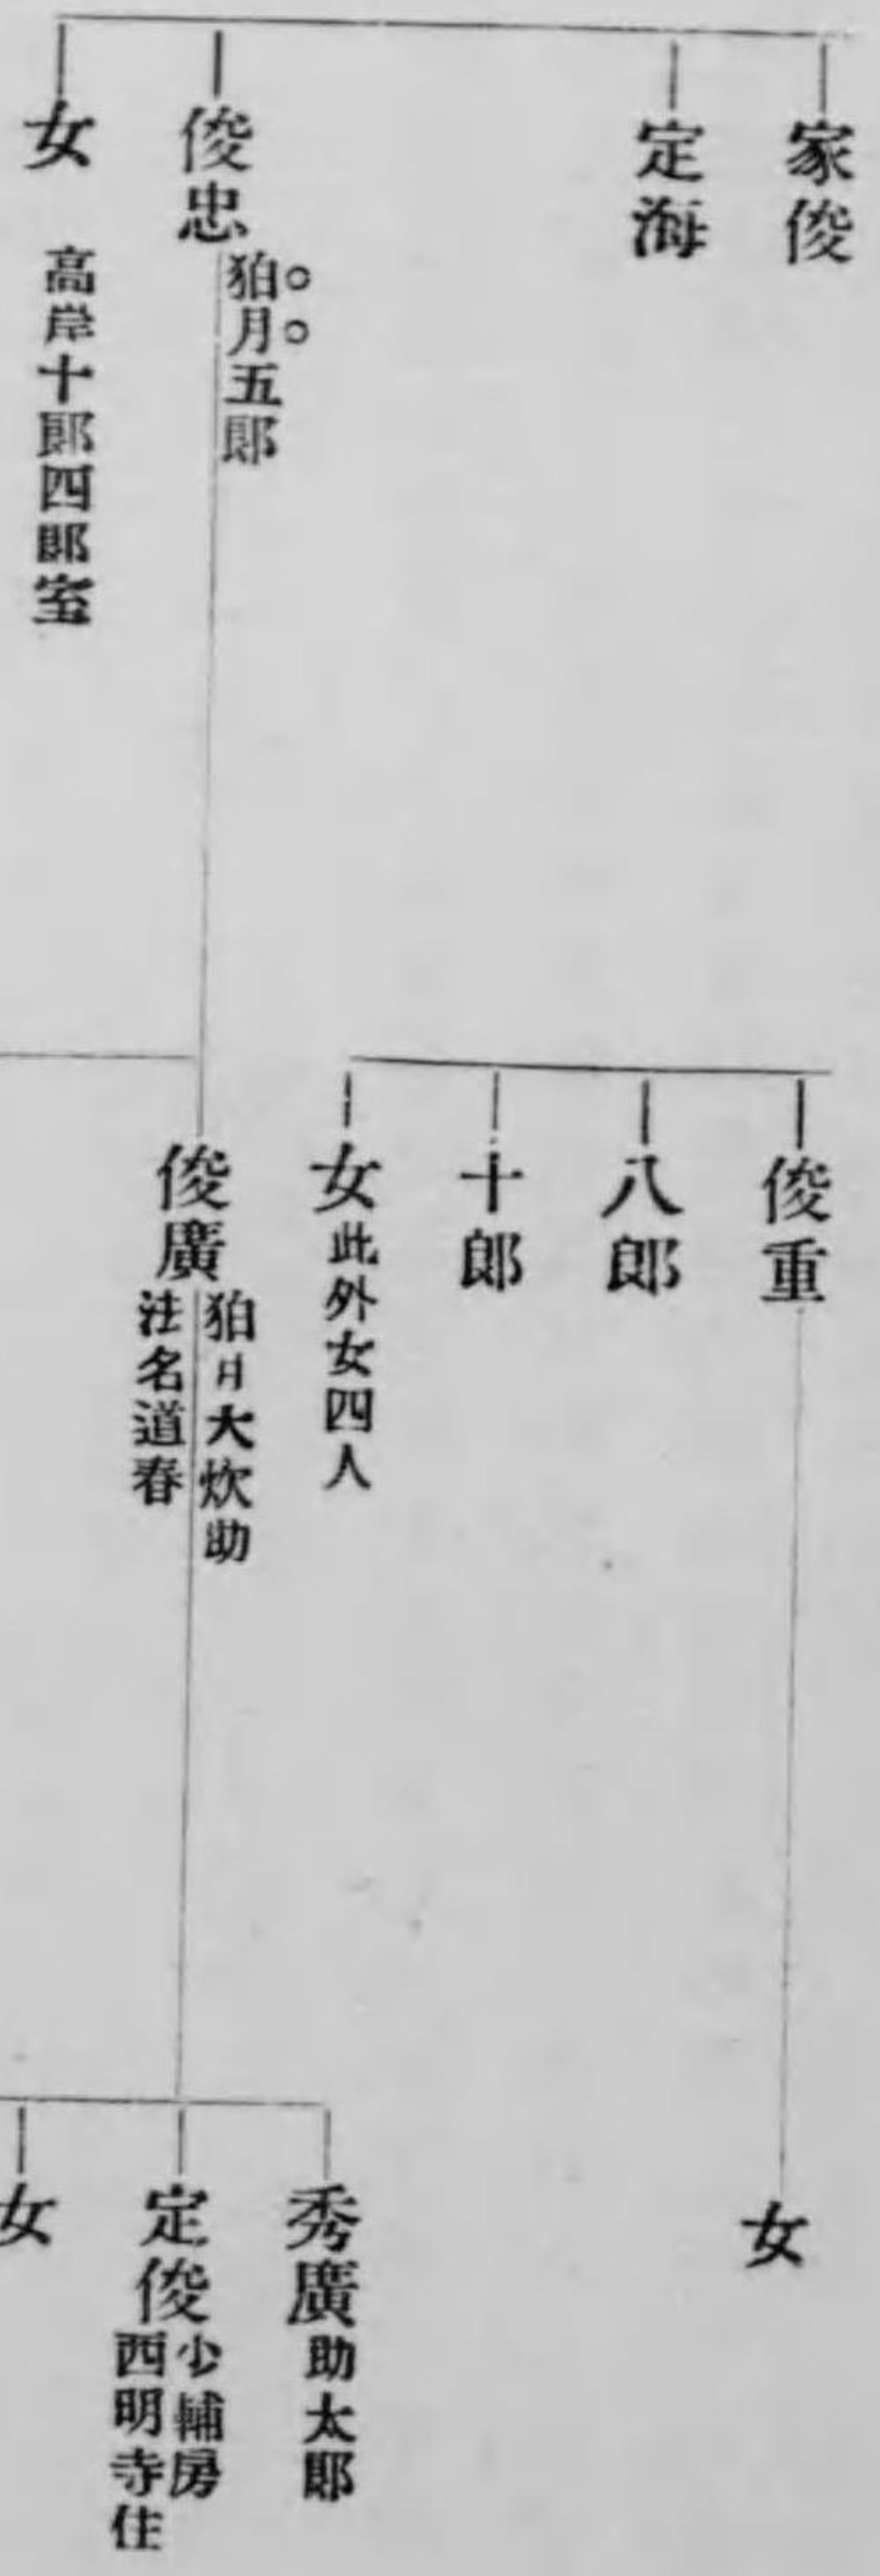 家俊
定海
俊忠
狛月五郎
女
高岸十郎四郎室
俊重
八郎
十郎
女
此外女四人
俊廣
狛月大炊助
法名道春
女
秀廣
助太郎
定俊
少輔房
西明寺住
女